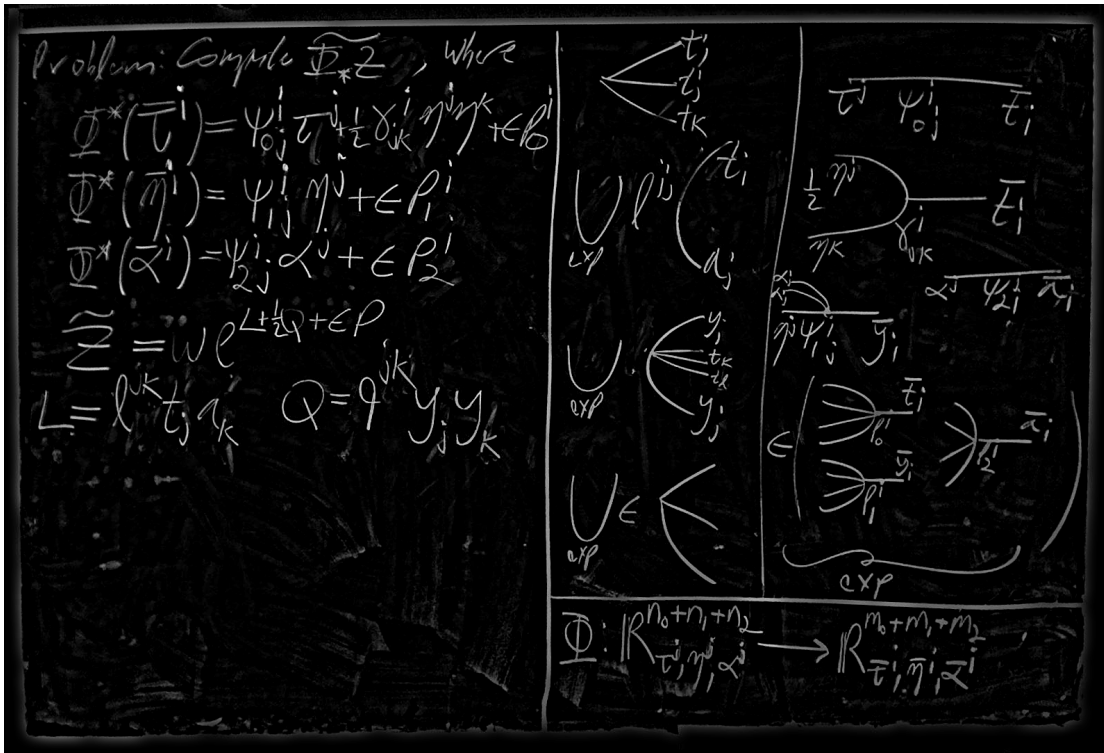 Problem: Compute Φ̃_*Z, where
Φ*(τ̄^i) = ψ_0^i_j τ^j + ½ γ^i_jk η^j η^k + ϵP_0^i
Φ*(η̄^i) = ψ_1^i_j η^j + ϵP_1^i
Φ*(ᾱ^i) = ψ_2^i_j α^j + ϵP_2^i
Z̃ = ω e^{L+½Q+ϵP}
L = l^{jk} t_j a_k Q = q^{jk} y_j y_k
t_i
t_j
t_k
∪ l^{ij} t_i
exp a_j
y_i
t_k
∪
exp y_j
∪ ϵ
exp
τ^j ψ_0^i_j t̄_i
½ η^j t̄_i
η^k γ^i_jk
α^j ψ_2^i_j ā_i
η^j ψ_1^i_j ȳ_i
ϵ ( P_0^i t̄_i P_2^i ā_i )
P_1^i ȳ_i
exp
Φ: ℝ^{n_0+n_1+n_2}_{τ^j, η^j, α^j} → ℝ^{m_0+m_1+m_2}_{τ̄^i, η̄^i, ᾱ^i}